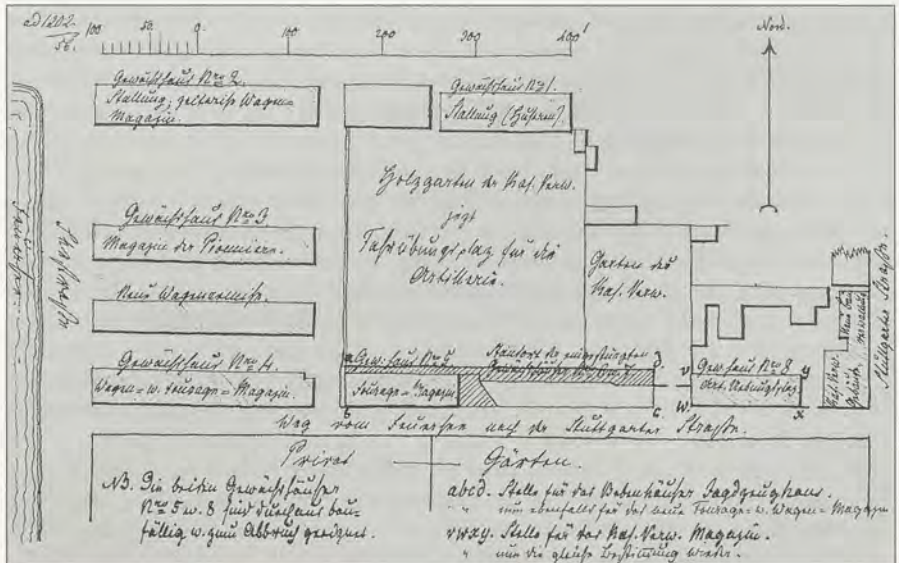 ad 1202.
56.
100 50. 0. 100 200 300 400'
Nord.
Gewächshaus Nro 2.
Stallung; Wagen=
Magazin.
Gewächshaus No 1.
Stallung (Husaren).
Holzgarten der Kas. Verw.
jezt
Fahrübungsplaz für die
Artillerie.
Garten der
Kas. Verw.
Gewächshaus Nro 3.
Magazin der Pionniere.
Neue Wagenremise.
Gewächshaus Nro 4.
Wagen= u. Fourage=Magazin.
Feuersee
Straße
a Gew:haus Nro 5
Standort der eingestürzten
Gewächshäuser Nro 6 u. 7
d
Fourage=Magazin
b
c
v Gew:haus Nro 8 y
Art. Uebungsplaz
w x
Kas. Verw.
Gebäude
Neue
Stuttgarter Straße.
Weg vom Feuersee nach der Stuttgarter Straße.
Privat — Gärten.
NB. Die beiden Gewächshäuser
Nro 5 u. 8 sind durchaus bau=
fällig u. zum Abbruch geeignet.
abcd. Stelle für das Bebenhäuser Jagdzeughaus.
" nun ebenfalls für das neue Fourage= u. Wagen=Magazin
vwxy. Stelle für das Kas. Verw. Magazin.
" nun die gleiche Bestimmung wieder.